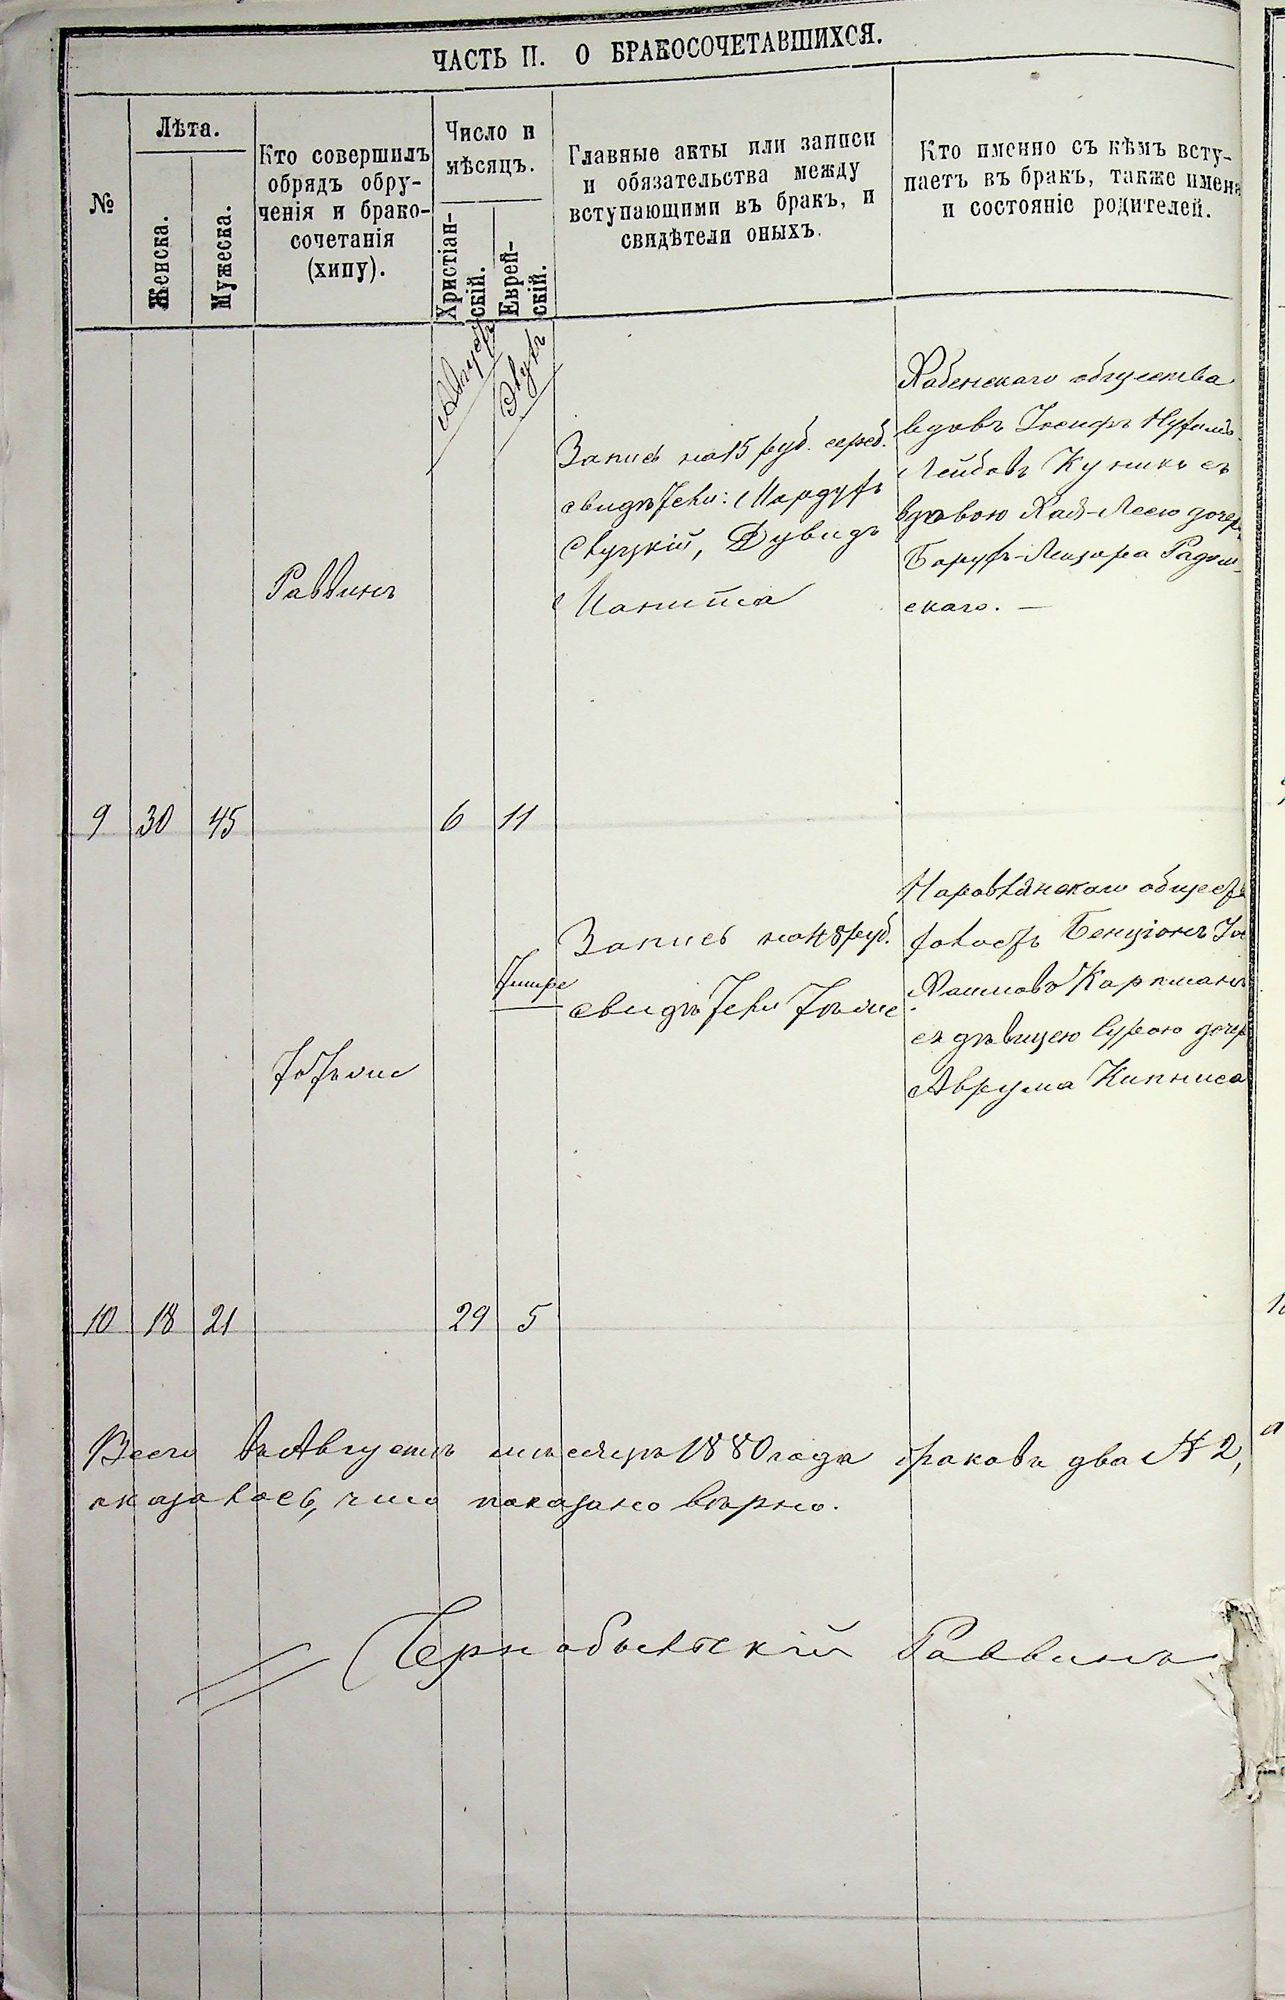 ЧАСТЬ II. О БРАКОСОЧЕТАВШИХСЯ.
№
Лѣта.
Женска.
Мужеска.
Кто совершилъ
обрядъ обру-
ченія и брако-
сочетанія
(хипу).
Число и
мѣсяцъ.
Христіан-
скій.
Еврей-
скій.
Главные акты или записи
и обязательства между
вступающими въ бракъ, и
свидѣтели оныхъ.
Кто именно съ кѣмъ всту-
паетъ въ бракъ, также имена
и состояніе родителей.
Августъ
Раввинъ
Запись на 15 руб. сереб.
свидѣтели: Мордухъ
Слуцкій, Дувидъ
Хабенскаго общества
вдовъ Іосифъ
Лейбовъ Куникъ съ
вдовою Хая-Леею дочер
Борухъ-Лейзера Радом-
скаго. —
9 30 45 6 11
Тотъ же
Тишре
Запись на 48 руб.
свидѣтели Тѣ же
Наровлянскаго обществ
холостъ Бенціонъ
Хаимовъ Карпманъ
съ дѣвицею Сурою дочер
Аврума Кипниса
10 18 21 29 5
Всего въ Августѣ мѣсяцѣ 1880 года браковъ два № 2,
оказалось, что показано вѣрно.
Чернобыльскій Раввинъ